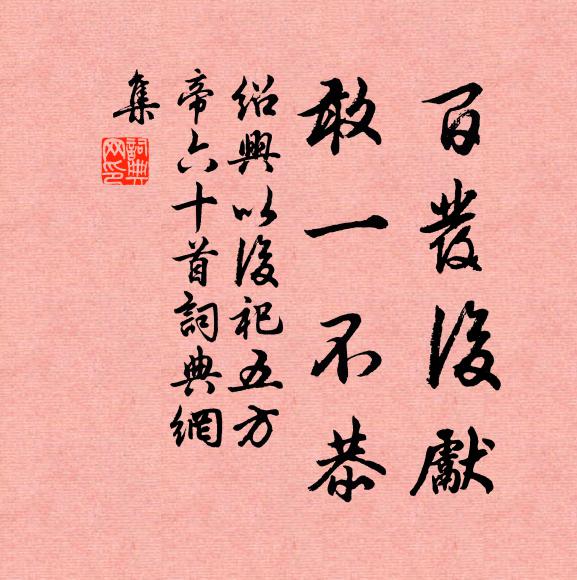 百發後獻
敢一不恭
紹興以後祀五方
帝六十首詞典網
集
詞典
网印